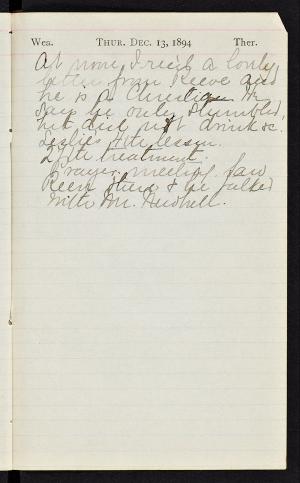 Wea. Thur. Dec. 13, 1894 Ther.
At noon I rec'd a lovely
letter from Reeve and
he is a Christian He
says he only stumbled,
but did not drink &c.
Leslie's 4th lesson.
treatment.
Prayer meeting. Saw
there & he talked
with Mr.